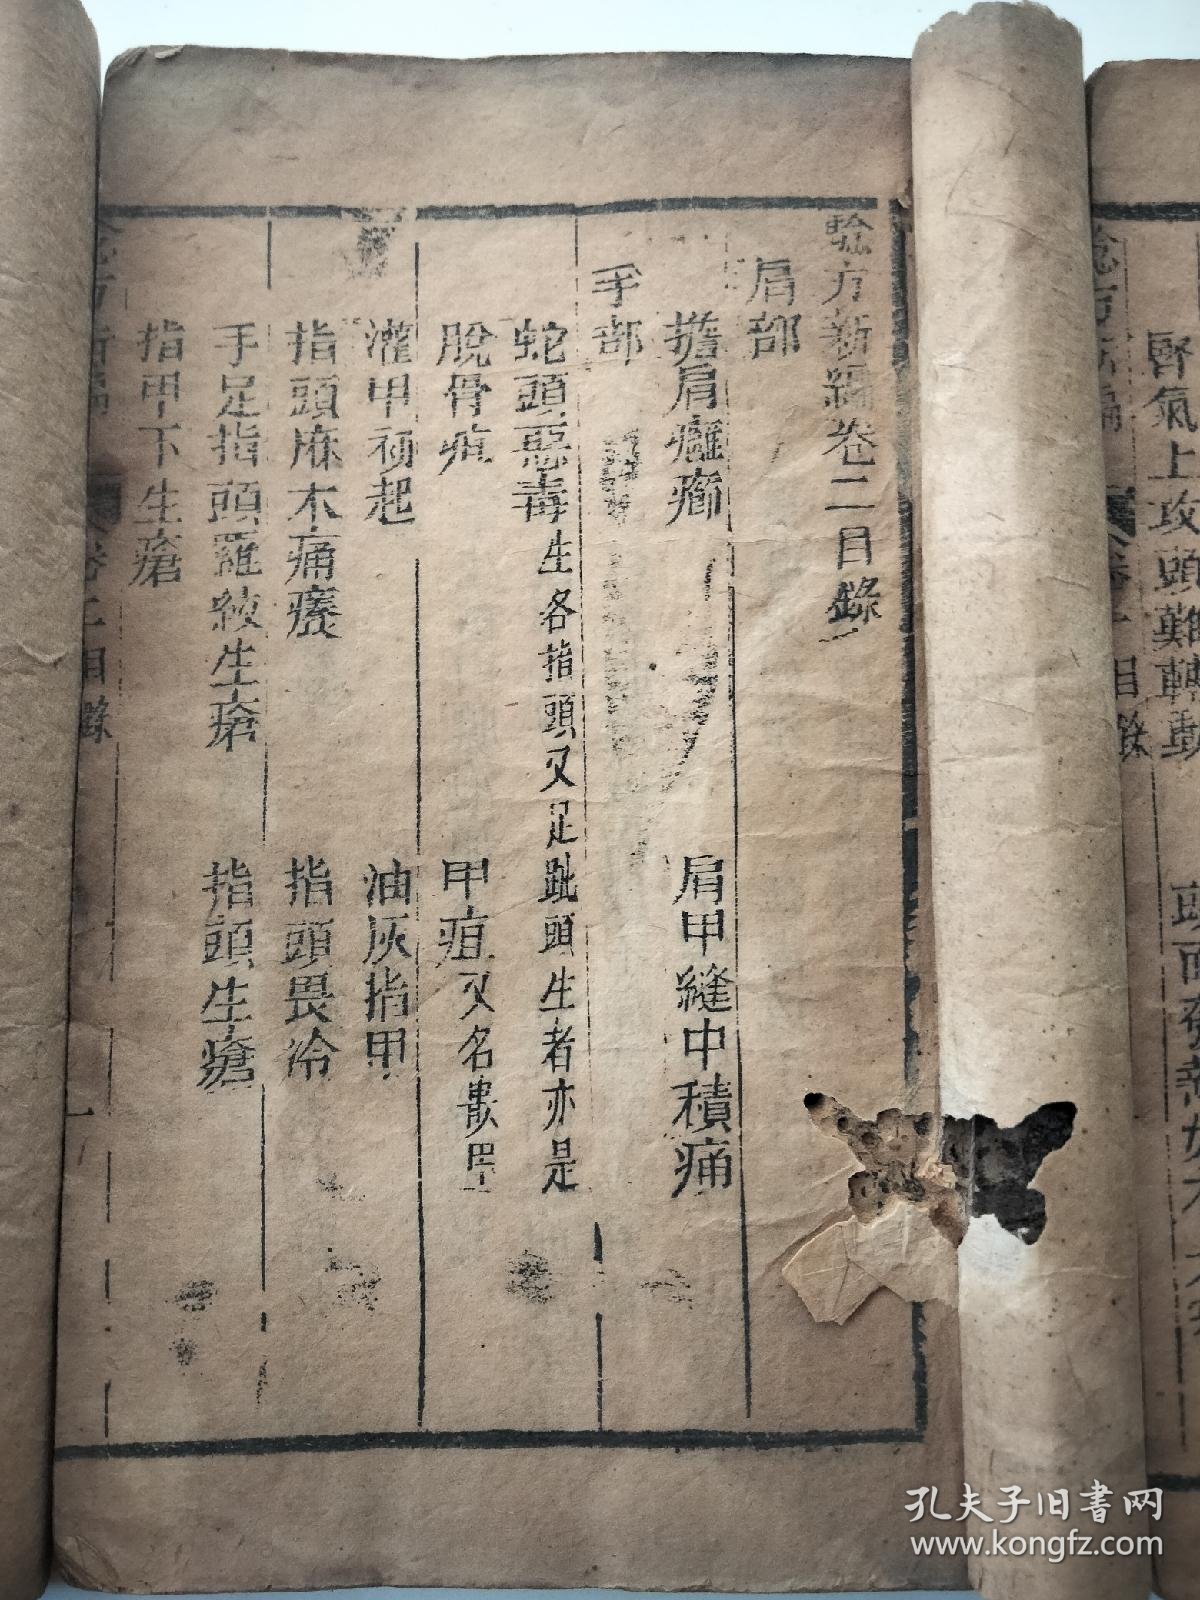 腎氣上攻頭難轉動
驗方新編卷二目錄
肩部
擔肩癰癤
肩甲縫中積痛
手部
蛇頭惡毒生各指頭又足趾頭生者亦是
脫骨疽
甲疽又名嵌甲
灌甲
油灰指甲
指頭麻木痛癢
指頭畏冷
手足指頭羅紋生瘡
指頭生瘡
指甲下生瘡
卷二目錄
一
孔夫子旧书网
www.kongfz.com